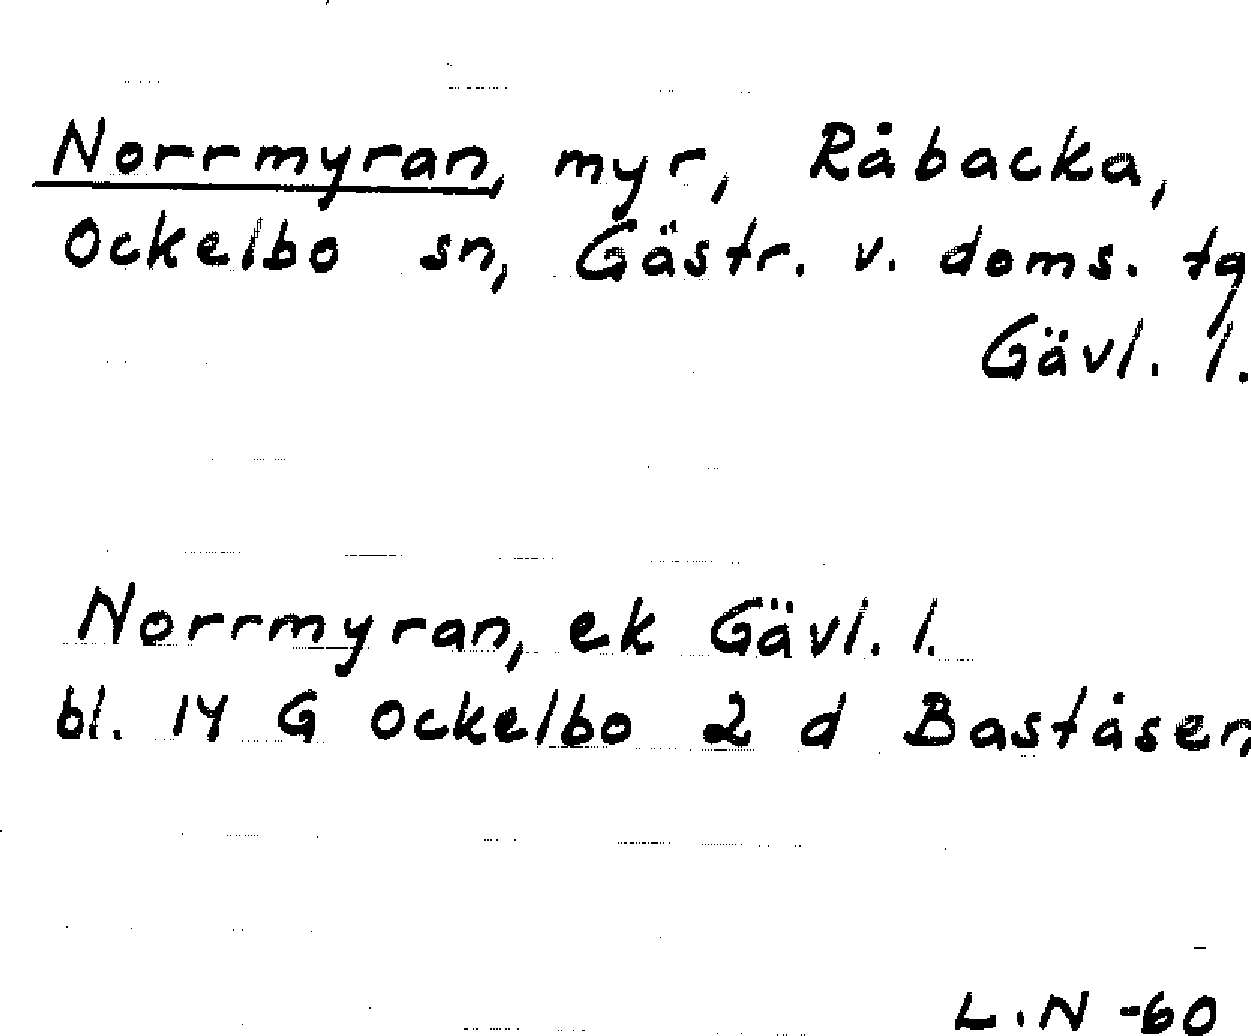 Norrmyran, myr, Råbacka,
Ockelbo sn, Gästr. v. doms. tg
Gävl. l.
Norrmyran, ek Gävl. l.
bl. 14 G Ockelbo 2 d Baståsen
L.N -60